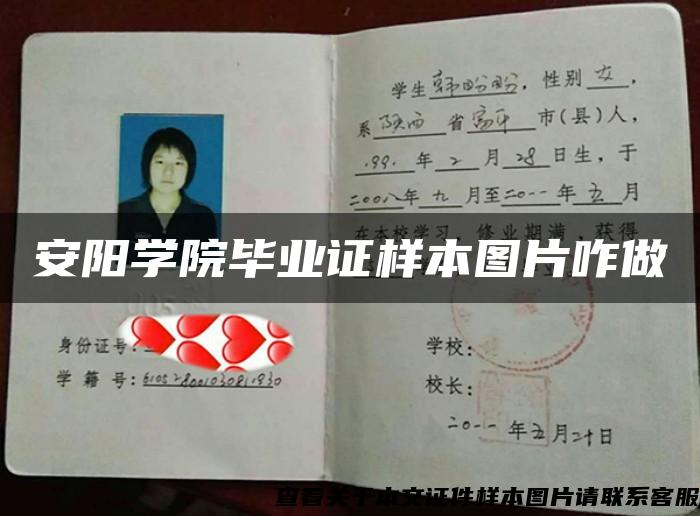 学生韩盼盼，性别女，
系陕西省富平市(县)人，
1991年2月28日生，于
二00八年九月至二0一一年五月
在本校学习，修业期满，获得
安阳学院毕业证样本图片咋做
身份证号:
学籍号:610528001030811930
学校:
校长:
二0一一年五月二十日
查看关于本文证件样本图片请联系客服